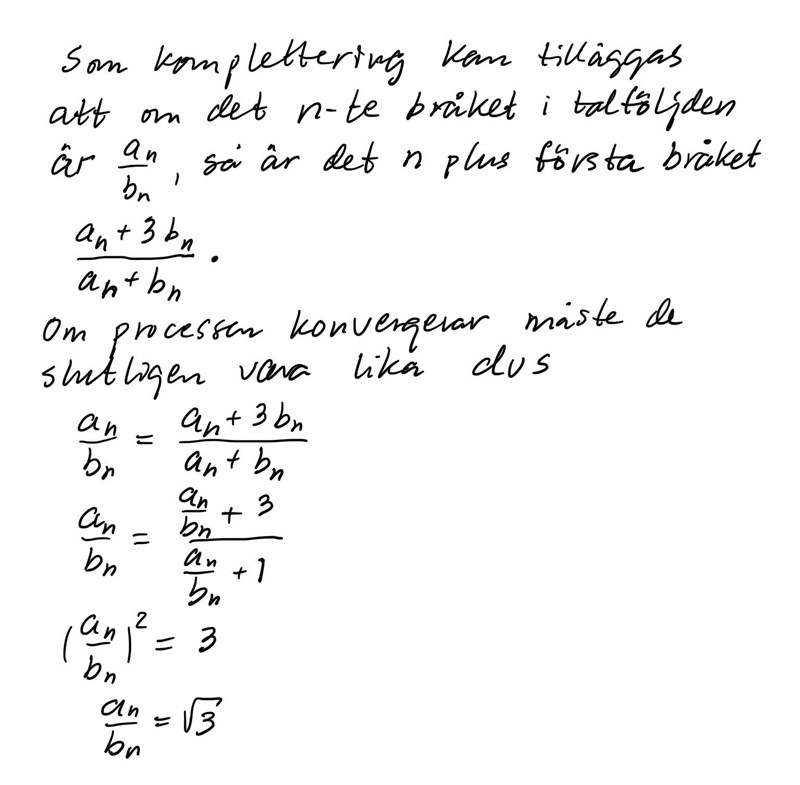 Som komplettering kan tilläggas
att om det n-te bråket i talföljden
är a_n/b_n, så är det n plus första bråket
(a_n + 3b_n)/(a_n + b_n).
Om processen konvergerar måste de
slutligen vara lika dvs
a_n/b_n = (a_n + 3b_n)/(a_n + b_n)
a_n/b_n = (a_n/b_n + 3)/(a_n/b_n + 1)
(a_n/b_n)² = 3
a_n/b_n = √3